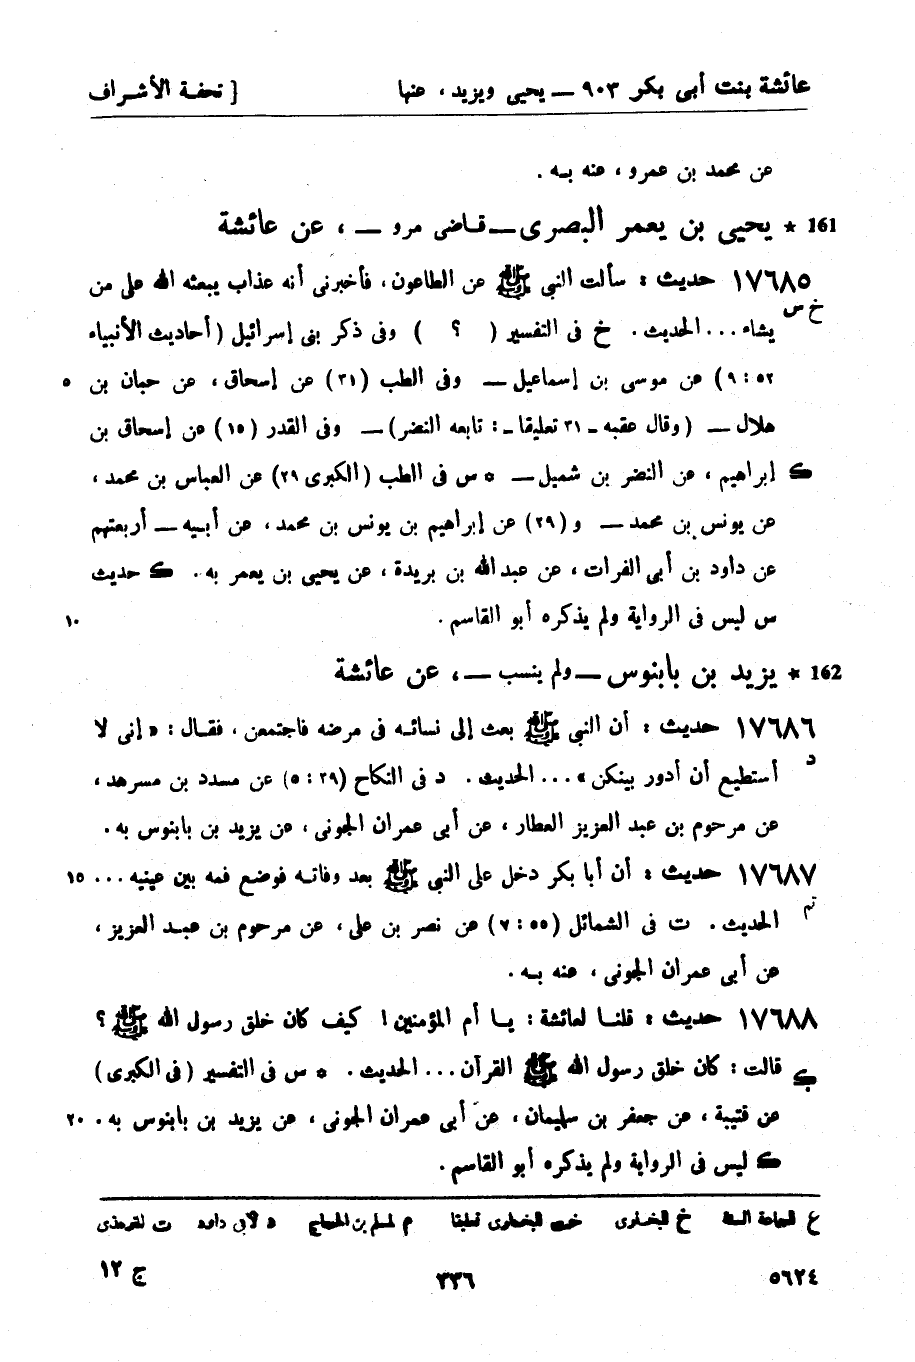 عائشة بنت أبى بكر ٩٠٣ — يحيى ويزيد ، عنها [ تحفة الأشراف
عن محمد بن عمرو ، عنه بـه .
161 * يحيى بن يعمر البصرى — قـاضى مرو — ، عن عائشة
١٧٦٨٥ حديث : سألت النبي ﷺ عن الطاعون ، فأخبرنى أنه عذاب يبعثه الله على من
خ س
يشاء ... الحديث . خ فى التفسير ( ؟ ) وفى ذكر بنى إسرائيل ( أحاديث الأنبياء
٥٢ : ٩ ) عن موسى بن إسماعيل — وفى الطب ( ٣١ ) عن إسحاق ، عن حبان بن ٥
هلال — ( وقال عقبه ـ ٣١ تعليقا ـ : تابعه النضر ) — وفى القدر ( ١٥ ) عن إسحاق بن
ك إبراهيم ، عن النضر بن شميل — * س فى الطب ( الكبرى ٢٩ ) عن العباس بن محمد ،
عن يونس بن محمد — و ( ٢٩ ) عن إبراهيم بن يونس بن محمد ، عن أبـيه — أربعتهم
عن داود بن أبى الفرات ، عن عبد الله بن بريدة ، عن يحيى بن يعمر به . ك حديث
س ليس فى الرواية ولم يذكره أبو القاسم . ١٠
162 * يزيد بن بابنوس — ولم ينسب — ، عن عائشة
١٧٦٨٦ حديث : أن النبي ﷺ بعث إلى نسائـه فى مرضه فاجتمعن ، فقـال : « إنى لا
د
أستطيع أن أدور بينكن » ... الحديث . د فى النكاح ( ٣٩ : ٥ ) عن مسدد بن مسرهد ،
عن مرحوم بن عبد العزيز العطار ، عن أبى عمران الجونى ، عن يزيد بن بابنوس به .
١٧٦٨٧ حديث : أن أبا بكر دخل على النبي ﷺ بعد وفاتـه فوضع فمه بين عينيه ... ١٥
تم
الحديث . ت فى الشمائل ( ٥٥ : ٧ ) عن نصر بن على ، عن مرحوم بن عبـد العزيز ،
عن أبى عمران الجونى ، عنه بـه .
١٧٦٨٨ حديث : قلنـا لعائشة : يـا أم المؤمنين ! كيف كان خلق رسول الله ﷺ ؟
قالت : كان خلق رسول الله ﷺ القرآن ... الحديث . * س فى التفسير ( فى الكبرى )
عن قتيبة ، عن جعفر بن سليمان ، عن أبى عمران الجونى ، عن يزيد بن بابنوس به . ٢٠
ك ليس فى الرواية ولم يذكره أبو القاسم .
ع للجماعة الستة خ للبخارى خت للبخارى تعليقا م لمسلم بن الحجاج د لابى داود ت للترمذى
٥٦٢٤ ٣٣٦ ج ١٢